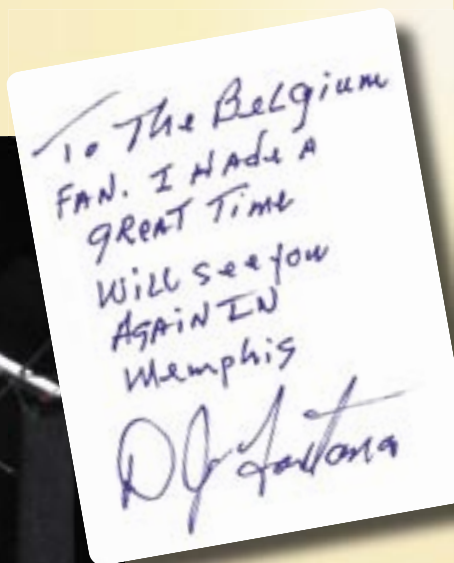 To The Belgium
FAN. I Hade A
gREAT Time
Will see you
AGAIN IN
Memphis
DJ Fontana